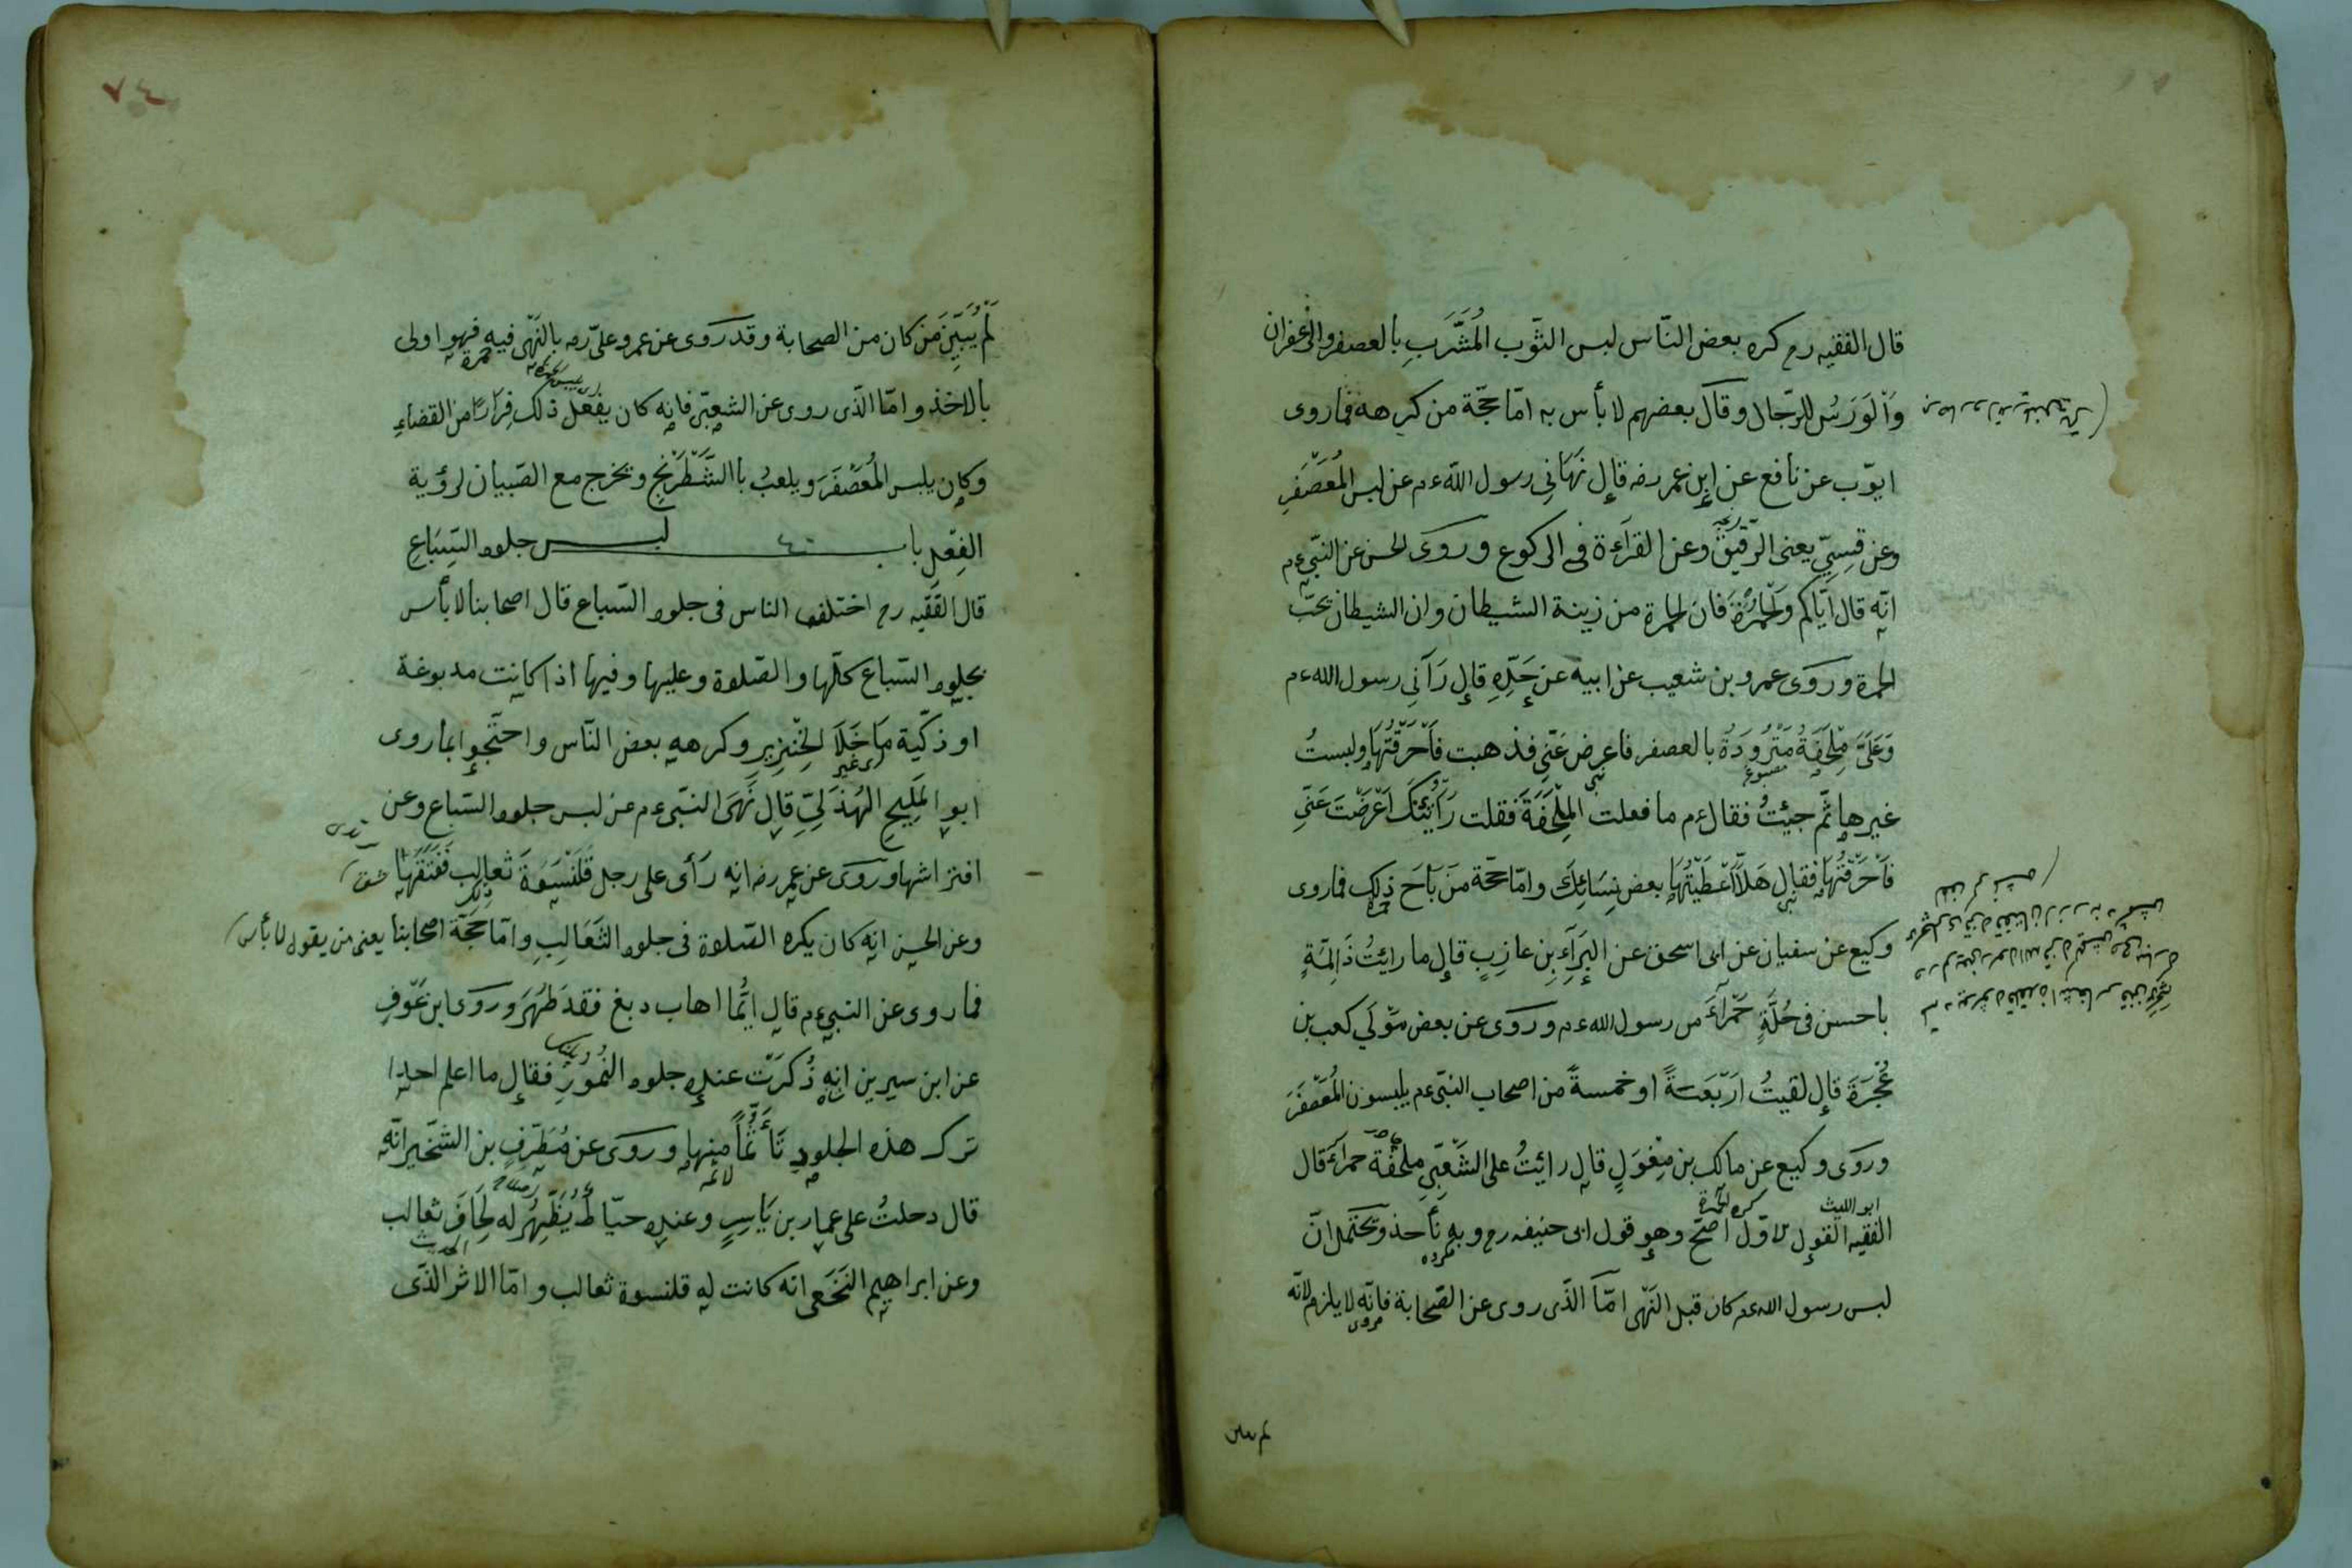 قال الفقيه رح كره بعض النّاس لبس الثّوب المُشَرَّبِ بالعصفر والزعفران
وَالْوَرَسُ للرّجال وقال بعضهم لا بأس به امّا حجّة من كرهه فما روى
ايوّب عن نافع عن إبن عمر رضه قال نَهَانِي رسول اللّه ءم عن لبس المُعَصْفَرِ
وعن قسيِّ يعنى الرّقيق وعن القرأءة فى الركوع وروى لحسن عن النبّى ءم
انّه قال ايّاكم ولحمُرْةَ فان لحمرة من زينة الشيطان وان الشيطان يحبّ
الحمرة وروى عمرو بن شعيب عن ابيه عن جَدِّهِ قال رَآنِي رسول الله ءم
وَعَلَىَّ مِلْحَفَةُ مَزْرُودَةُ بالعصفر فاعرض عَنّى فذهبت فَاَحْرَقْتُهَا ولبستُ
غيرها ثّم جئِتُ فقال ءم ما فعلت المِلْحَفَةَ فقلت رَأَيْتُكَ اَعْرَضْتَ عَنّىِ
فَاَحْرَقْتُهَا فقال هَلاَّ اَعْطَيْتُهَا بعض نِسَائِكَ وامّا حجّة مَن بَاحَ ذلك فما روى
وكيع عن سفيان عن ابى اسحق عن البَرَآءِ بِن عازِبٍ قال ما رائيتُ ذَالِمَّةٍ
باحسن فى حُلَّةٍ حَمْرَآءَ من رسول الله ءم وروى عن بعض مَوْلَي كعب بن
عُجْرَةَ قال لقيتُ اَرْبَعَةً او خمسةً من اصحاب النبّى ءم يلبسون المُعَصْفَرَ
وروى وكيع عن مالك بن مِغْوَلٍ قال رائيتُ على الشَعْبّى ملحفة حمرآءَ قال
ابو الليث كره الحمرة
الفقيه القول لاوّل اصحّ وهو قول ابى حنيفه رح وبه نأحذ ويحتمل انّ
لبس رسول الله ءم كان قبل النّهى امّا الّذى روى عن الصّحابة فانّه لا يلزم لانّه
لم يبين
٧٤
لَمْ يُبَيِّنَ مَن كان من الصحابة وقد روى عن عمر وعلىّ رضه بالنَهْى فيه فهو اولى
بالاخذ وامّا الّذى روى عن الشعبّى فانه كان يفعل ذلك فِرَارًا من القضاءِ
وكان يلبس المُعَصْفَرَ ويلعبُ باالشَّطْرَنْجِ ويخرج مع الصّبيان لرؤية
الفِيلِ باب ٤٠ لبس جلود السِّبَاعِ
قال الفَقيه رح اختلف الناس فى جلود السّباع قال اصحابنا لا بأس
بجلود السّباع كلّها والصّلوة وعليها وفيها اذا كانت مدبوغة
او ذكّية مَا خَلَا لخِنْزِيرِ وكرهه بعض النّاس واحتّجوا بما روى
ابو المَلِيحِ الهُذَلِىّ قال نَهَى النبّى ءم عن لبس جلود السّباع وعن
افتراشها وروى عن عمر رضه انه رَأى على رجل قَلَنْسَوَةَ ثعالب فَفَتَقَهَا
وعن الحسن انه كان يكره الصّلاوة فى جلود الثَعَالِبِ وامّا حَجّة اصحابنا يعنى من يقول لا بأس
فما روى عن النبى ءم قال ايُّما اهاب دبغ فقد طَهُرَ وروى ابن عَوْفٍ
عن ابن سيرين انه ذُكرَتْ عنده جلود النُمُورِ فقال ما اعلم احدا
ترك هذه الجلود تَأَثُّماً منها وروى عن مُطَرِّفٍ بن الشخّير انّه
قال دحلتُ على عمار بن يَاسِرٍ وعنده خيّاط يُظَهِّرُ له لِحَافَ ثعالب
وعن ابراهيم النَخَعى انه كانت له قلنسوة ثعالب وامّا الاثر الذّى